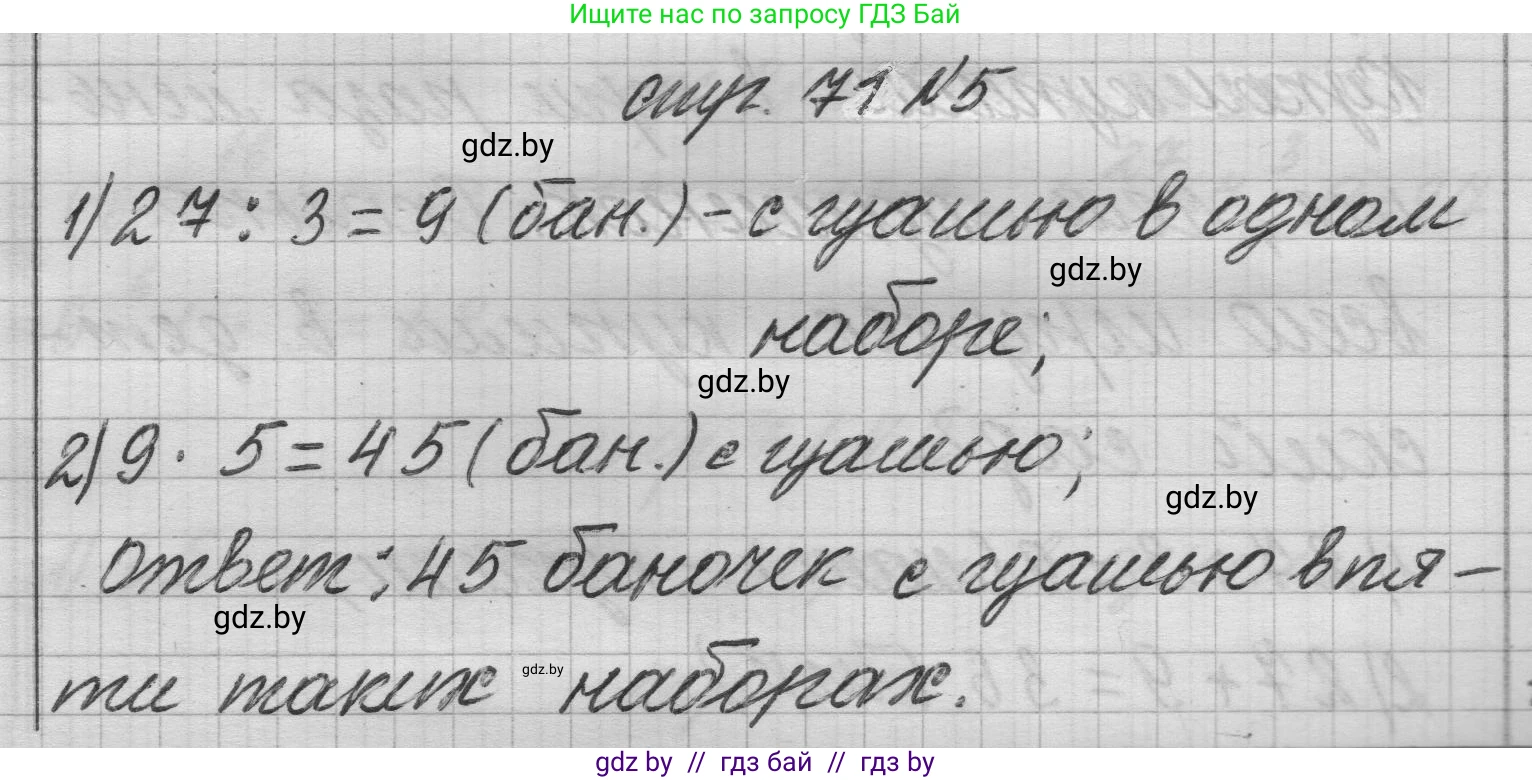 Ищите нас по запросу ГДЗ Бай
стр. 71 №5
gdz.by
1) 27 : 3 = 9 (бан.) - с гуашью в одном
gdz.by
наборе;
gdz.by
2) 9 · 5 = 45 (бан.) с гуашью;
gdz.by
Ответ: 45 баночек с гуашью в пя-
gdz.by
ти таких gdz.by наборах.
gdz by // гдз бай // гдз by